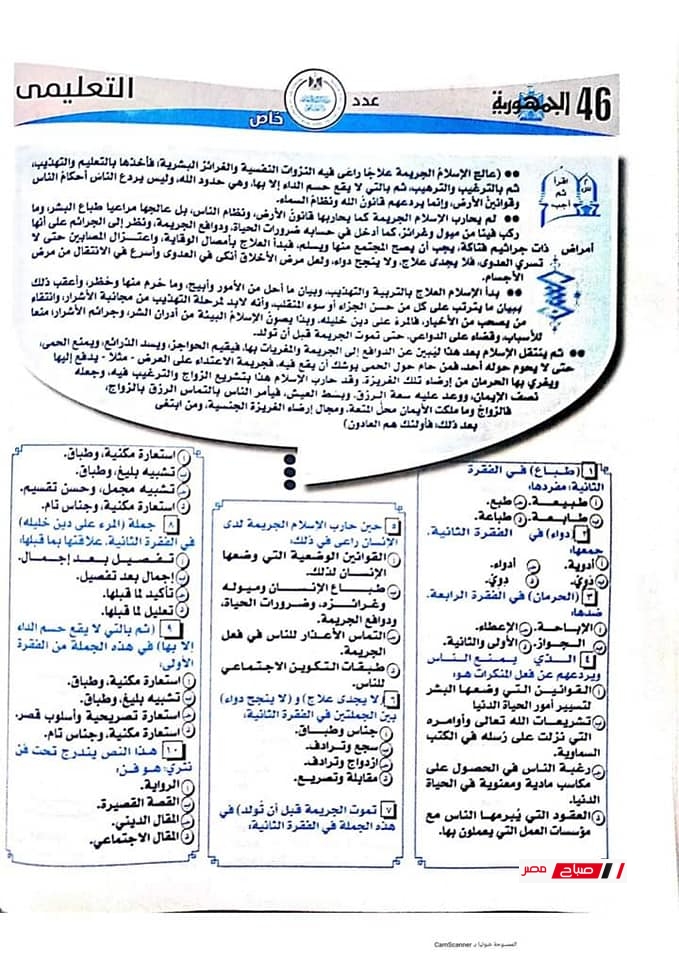 46 الجمهورية
عدد
خاص
التعليمى
اقرأ
ثم
أجب
•• (عالج الإسلام الجريمة علاجًا راعى فيه النزوات النفسية والغرائز البشرية؛ فأخذها بالتعليم والتهذيب،
ثم بالترغيب والترهيب، ثم بالتي لا يقع حسم الداء إلا بها، وهي حدود الله، وليس يردع الناس أحكامُ الناس
وقوانينُ الأرض، وإنما يردعهم قانونُ الله ونظامُ السماء.
•• لم يحارب الإسلام الجريمة كما يحاربها قانونُ الأرض، ونظام الناس، بل عالجها مراعيا طباع البشر، وما
ركب فينا من ميول وغرائز، كما أدخل في حسابه ضرورات الحياة، ودوافع الجريمة، ونظر إلى الجرائم على أنها
أمراض ذات جراثيم فتاكة، يجب أن يصح المجتمع منها ويسلم، فبدأ العلاج بأمصال الوقاية، واعتزال المصابين حتى لا
تسري العدوى، فلا يجدى علاج، ولا ينجح دواء، ولعل مرض الأخلاق أنكى في العدوى وأسرع في الانتقال من مرض
الأجسام.
•• بدأ الإسلام العلاج بالتربية والتهذيب، وبيان ما أحل من الأمور وأبيح، وما حرم منها وحظر، وأعقب ذلك
ببيان ما يترتب على كل من حسن الجزاء أو سوء المنقلب، وأنه لابد لمرحلة التهذيب من مجانبة الأشرار، وانتقاء
من يصحب من الأخيار، فالمرءُ على دين خليله. وبذا يصونُ الإسلام البيئة من أدران الشر، وجرائم الأشرار؛ منعا
للأسباب، وقضاء على الدواعي، حتى تموت الجريمة قبل أن تولد.
•• ثم ينتقل الإسلام بعد هذا ليُبين عن الدوافع إلى الجريمة والمغريات بها، فيقيم الحواجز، ويسد الذرائع، ويمنع الحمى،
حتى لا يحوم حوله أحد، فمن حام حول الحمى يوشك أن يقع فيه، فجريمة الاعتداء على العرض - مثلا - يدفع إليها
ويغري بها الحرمان من إرضاء تلك الغريزة. وقد حارب الإسلام هذا بتشريع الزواج والترغيب فيه، وجعله
نصف الإيمان، ووعد عليه سعة الرزق، وبسط العيش، فيأمر الناس بالتماس الرزق بالزواج،
فالزواجُ وما ملكت الأيمان محلُّ المتعة، ومجال إرضاء الغريزة الجنسية، ومن ابتغى
بعد ذلك؛ فأولئك هم العادون)
١ (طباع) في الفقرة
الثانية؛ مفردها:
أ طبيعة. ب طبع.
ج طابعة. د طباعة.
٢ (دواء) في الفقرة الثانية.
جمعها:
أ أدوية. ب أدواء.
ج ذويّ. د دويّ.
٣ (الحرمان) في الفقرة الرابعة.
ضدها:
أ الإباحة. ب الإعطاء.
ج الجواز. د الأولى والثانية.
٤ الذي يمنع الناس
ويردعهم عن فعل المنكرات هو:
أ القوانين التي وضعها البشر
لتسيير أمور الحياة الدنيا
ب تشريعات الله تعالى وأوامره
التي نزلت على رسله في الكتب
السماوية.
ج رغبة الناس في الحصول على
مكاسب مادية ومعنوية في الحياة
الدنيا.
د العقود التي يُبرمها الناس مع
مؤسسات العمل التي يعملون بها.
٥ حين حارب الإسلام الجريمة لدى
الإنسان راعى في ذلك:
أ القوانين الوضعية التي وضعها
الإنسان لذلك.
ب طباع الإنسان وميوله
وغرائزه، وضرورات الحياة،
ودوافع الجريمة.
ج التماس الأعذار للناس في فعل
الجريمة.
د طبقات التكوين الاجتماعي
للناس.
٦ (لا يجدى علاج) و (لا ينجح دواء)
بين الجملتين في الفقرة الثانية:
أ جناس وطباق.
ب سجع وترادف.
ج ازدواج وترادف.
د مقابلة وتصريع.
٧ تموت الجريمة قبل أن تُولد) في
هذه الجملة في الفقرة الثانية:
أ استعارة مكنية، وطباق.
ب تشبيه بليغ، وطباق.
ج تشبيه مجمل، وحسن تقسيم.
د استعارة مكنية، وجناس تام.
٨ جملة (المرء على دين خليله)
في الفقرة الثانية. علاقتها بما قبلها:
أ تفصيل بعد إجمال.
ب إجمال بعد تفصيل.
ج تأكيد لما قبلها.
د تعليل لما قبلها.
٩ (ثم بالتي لا يقع حسم الداء
إلا بها) في هذه الجملة من الفقرة
الأولى:
أ استعارة مكنية، وطباق.
ب تشبيه بليغ، وطباق.
ج استعارة تصريحية وأسلوب قصر.
د استعارة مكنية، وجناس تام.
١٠ هذا النص يندرج تحت فن
نثري؛ هو فن:
أ الرواية.
ب القصة القصيرة.
ج المقال الديني.
د المقال الاجتماعي.
صباح مصر
الممسوحة ضوئيا بـ CamScanner